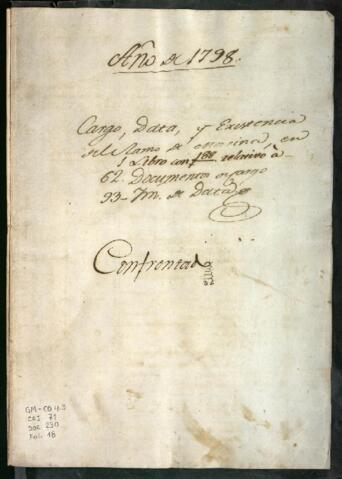 Año de 1798.
Cargo, Data, y Existencia
del Ramo de en
1 Libro con relativo à
62. Documentos
93 - Yn. de Data
Confrontad
GM-CO 4.3
CAJ 71
DOC 230
Fol. 18